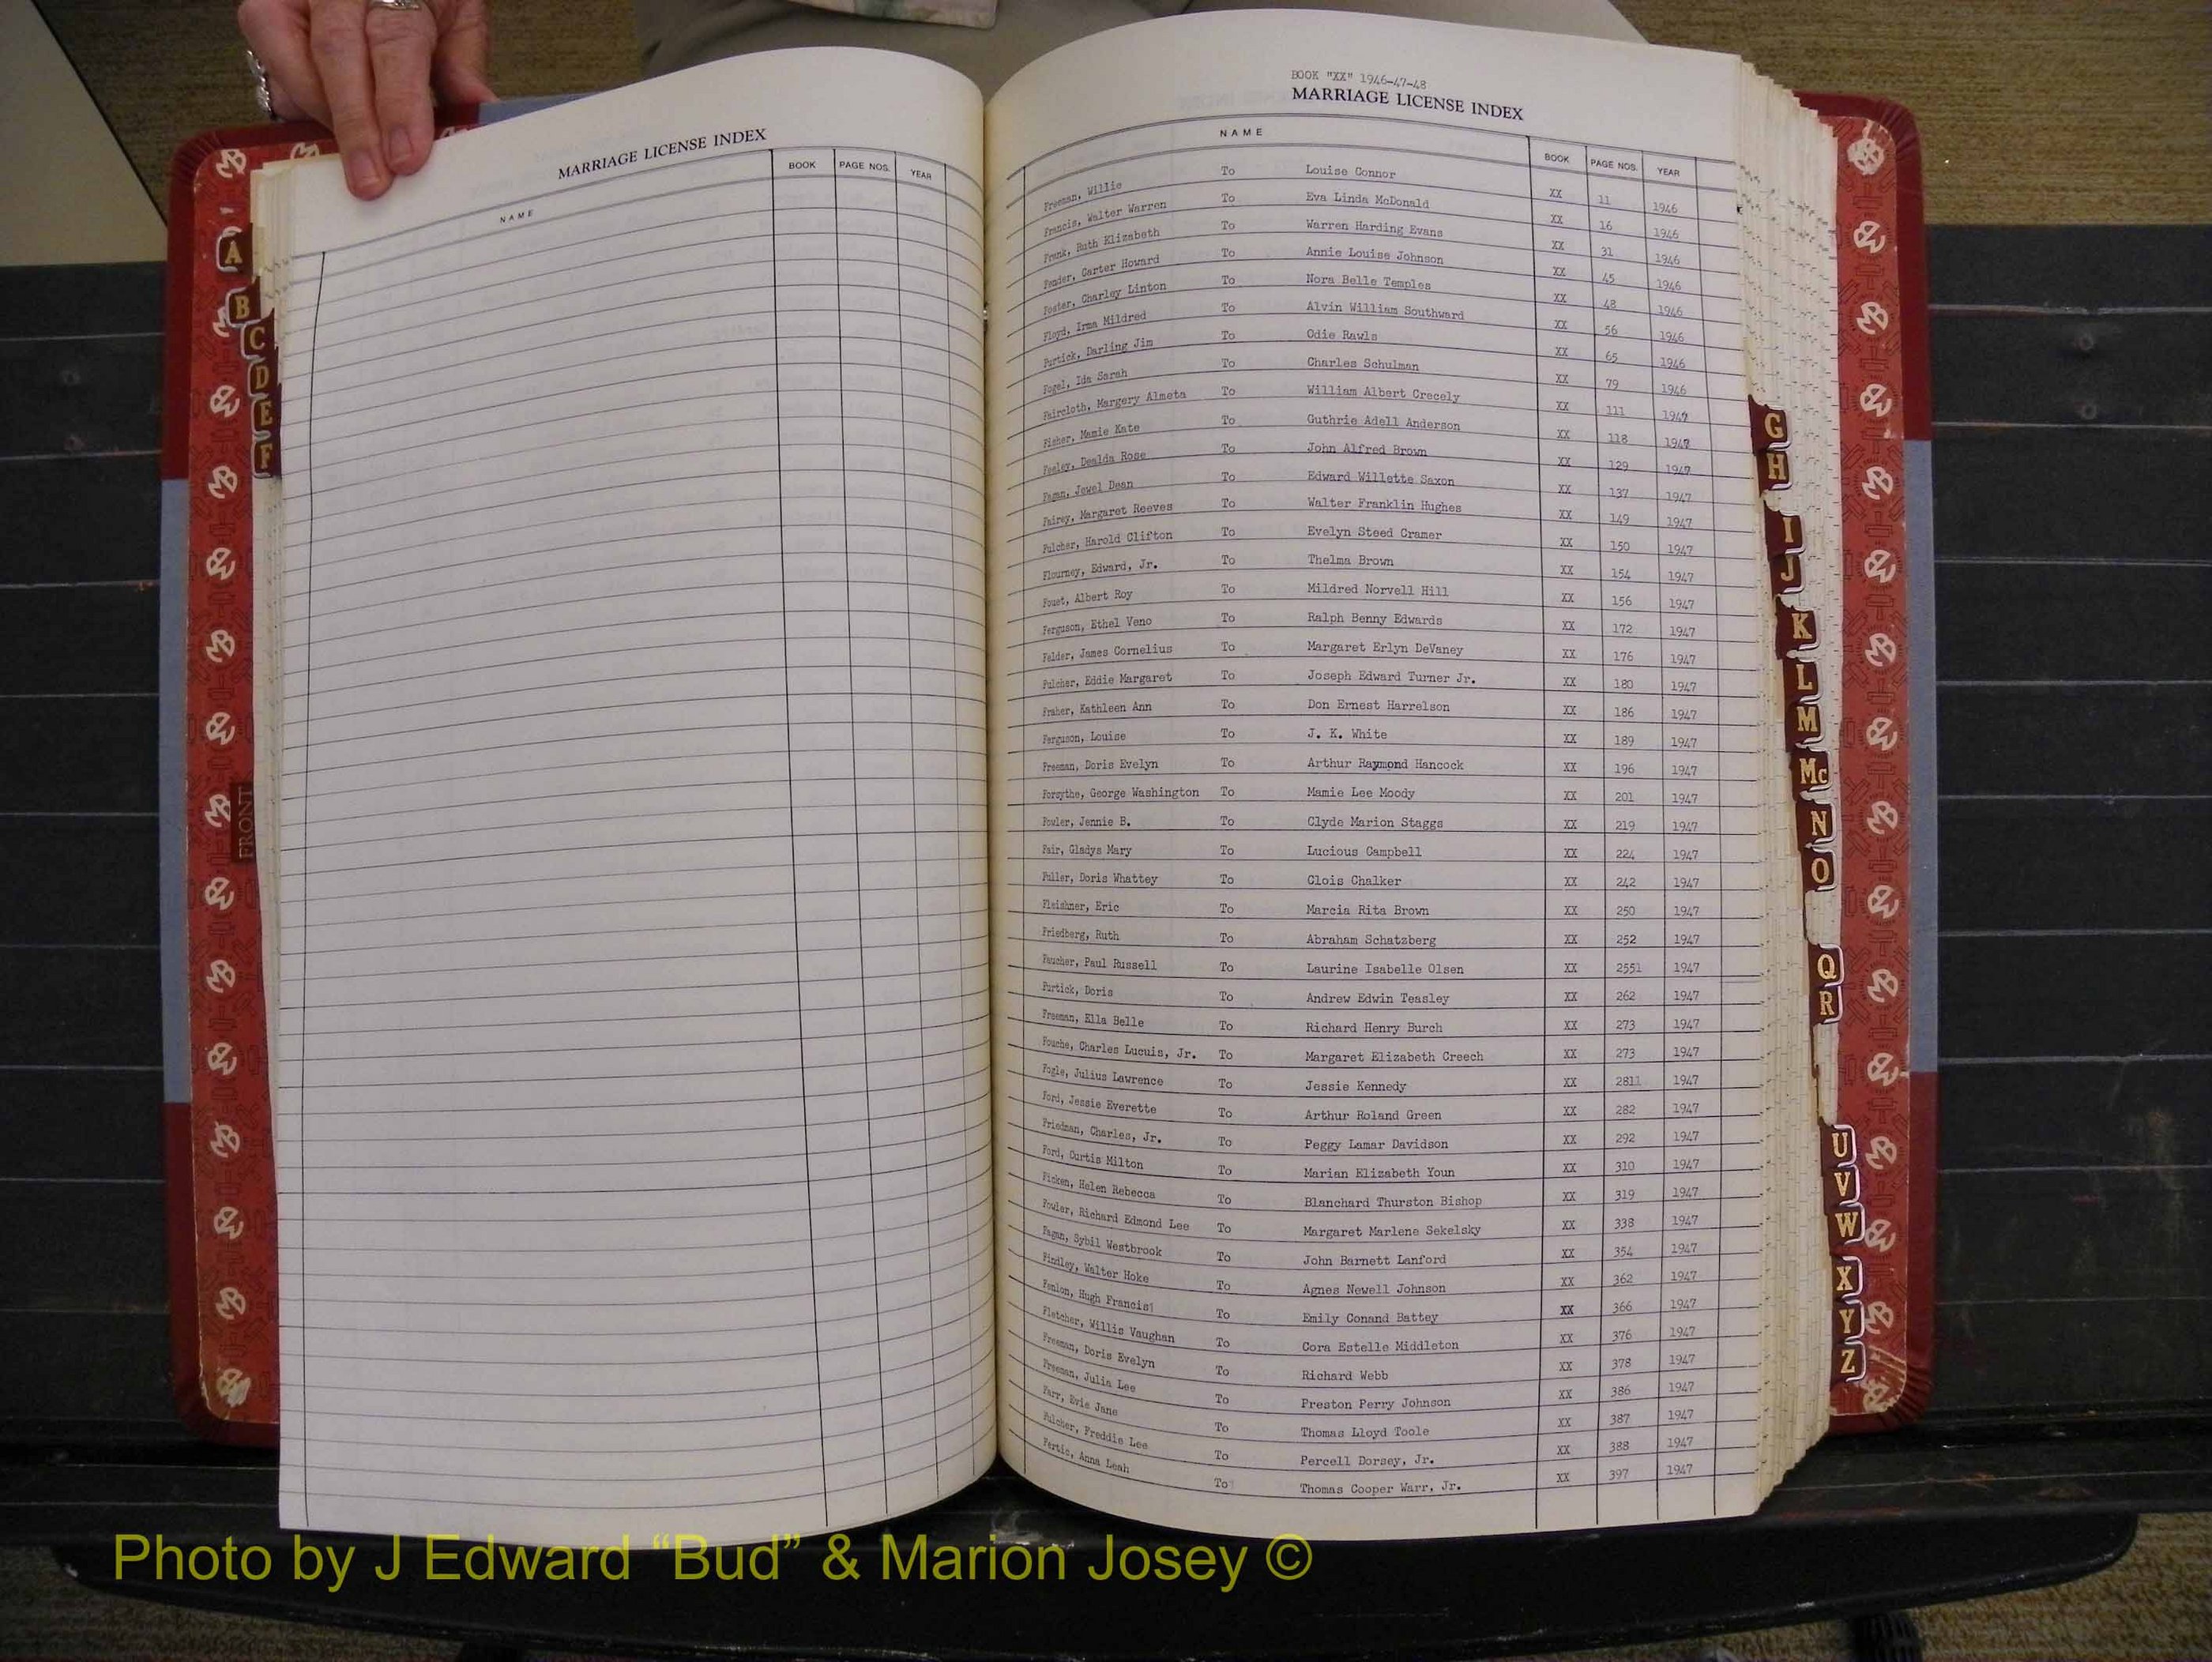 MARRIAGE LICENSE INDEX
NAME BOOK PAGE NOS. YEAR
A
B
C
D
E
F
FRONT
BOOK "XX" 1946-47-48
MARRIAGE LICENSE INDEX
NAME BOOK PAGE NOS. YEAR
Freeman, Willie To Louise Connor XX 11 1946
Francis, Walter Warren To Eva Linda McDonald XX 16 1946
Frank, Ruth Elizabeth To Warren Harding Evans XX 31 1946
Fender, Carter Howard To Annie Louise Johnson XX 45 1946
Foster, Charley Linton To Nora Belle Temples XX 48 1946
Floyd, Irma Mildred To Alvin William Southward XX 56 1946
Furtick, Darling Jim To Odie Rawls XX 65 1946
Fogel, Ida Sarah To Charles Schulman XX 79 1946
Faircloth, Margery Almeta To William Albert Crecely XX 111 1947
Fisher, Mamie Kate To Guthrie Adell Anderson XX 118 1947
Feeley, Dealda Rose To John Alfred Brown XX 129 1947
Fagan, Jewel Dean To Edward Willette Saxon XX 137 1947
Fairey, Margaret Reeves To Walter Franklin Hughes XX 149 1947
Fulcher, Harold Clifton To Evelyn Steed Cramer XX 150 1947
Flourney, Edward, Jr. To Thelma Brown XX 154 1947
Fouet, Albert Roy To Mildred Norvell Hill XX 156 1947
Ferguson, Ethel Veno To Ralph Benny Edwards XX 172 1947
Felder, James Cornelius To Margaret Erlyn DeVaney XX 176 1947
Fulcher, Eddie Margaret To Joseph Edward Turner Jr. XX 180 1947
Fraher, Kathleen Ann To Don Ernest Harrelson XX 186 1947
Ferguson, Louise To J. K. White XX 189 1947
Freeman, Doris Evelyn To Arthur Raymond Hancock XX 196 1947
Forsythe, George Washington To Mamie Lee Moody XX 201 1947
Fowler, Jennie B. To Clyde Marion Staggs XX 219 1947
Fair, Gladys Mary To Lucious Campbell XX 224 1947
Fuller, Doris Whattey To Clois Chalker XX 242 1947
Fleishner, Eric To Marcia Rita Brown XX 250 1947
Friedberg, Ruth To Abraham Schatzberg XX 252 1947
Faucher, Paul Russell To Laurine Isabelle Olsen XX 2551 1947
Furtick, Doris To Andrew Edwin Teasley XX 262 1947
Freeman, Ella Belle To Richard Henry Burch XX 273 1947
Fouche, Charles Lucuis, Jr. To Margaret Elizabeth Creech XX 273 1947
Fogle, Julius Lawrence To Jessie Kennedy XX 2811 1947
Ford, Jessie Everette To Arthur Roland Green XX 282 1947
Friedman, Charles, Jr. To Peggy Lamar Davidson XX 292 1947
Ford, Curtis Milton To Marian Elizabeth Youn XX 310 1947
Ficken, Helen Rebecca To Blanchard Thurston Bishop XX 319 1947
Fowler, Richard Edmond Lee To Margaret Marlene Sekelsky XX 338 1947
Fagan, Sybil Westbrook To John Barnett Lanford XX 354 1947
Findley, Walter Hoke To Agnes Newell Johnson XX 362 1947
Fanlon, Hugh Francis1 To Emily Conand Battey XX 366 1947
Fletcher, Willis Vaughan To Cora Estelle Middleton XX 376 1947
Freeman, Doris Evelyn To Richard Webb XX 378 1947
Freeman, Julia Lee To Preston Perry Johnson XX 386 1947
Farr, Evie Jane To Thomas Lloyd Toole XX 387 1947
Fulcher, Freddie Lee To Percell Dorsey, Jr. XX 388 1947
Fertic, Anna Leah To Thomas Cooper Warr, Jr. XX 397 1947
G
H
I
J
K
L
M
Mc
N
O
Q
R
U
V
W
X
Y
Z
Photo by J Edward “Bud” & Marion Josey ©